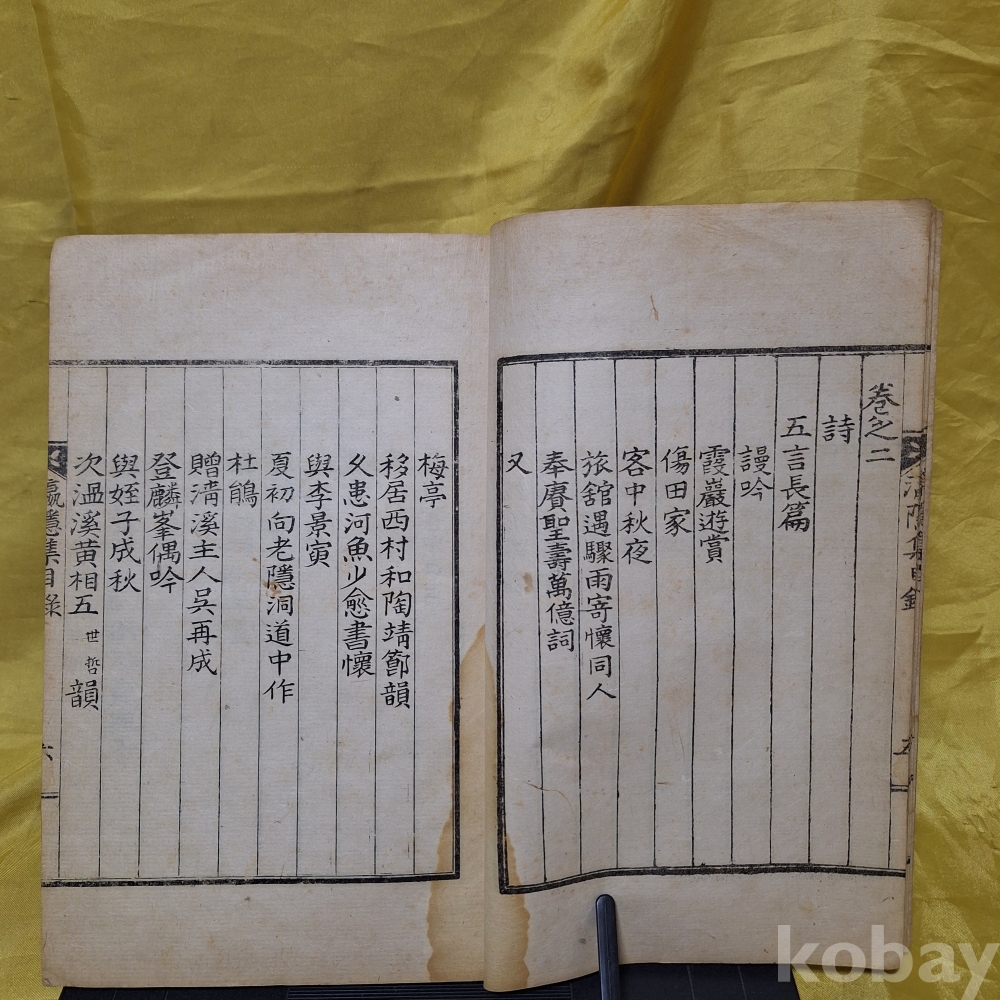 卷之二
詩
五言長篇
謾吟
霞巖遊賞
傷田家
客中秋夜
旅舘遇驟雨寄懷同人
奉賡聖壽萬億詞
又
梅亭
移居西村和陶靖節韻
久患河魚少愈書懷
與李景寅
夏初向老隱洞道中作
杜鵑
贈淸溪主人吳再成
登麟峯偶吟
與姪子成秋
次溫溪黃相五世哲韻
隱集目錄
六
kobay